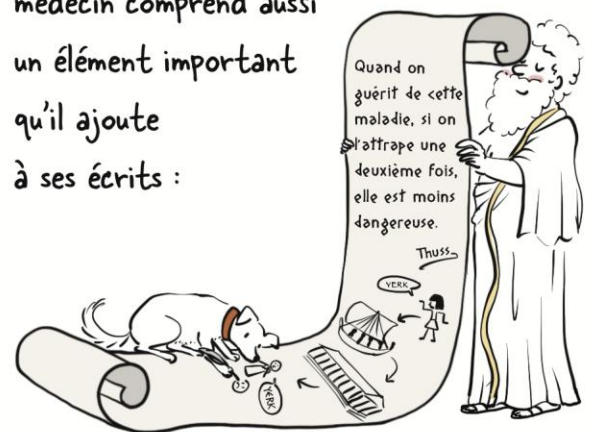 médecin comprend aussi
un élément important
qu'il ajoute
à ses écrits :
Quand on
guérit de cette
maladie, si on
l'attrape une
deuxième fois,
elle est moins
dangereuse.
Thuss
YERK
YERK